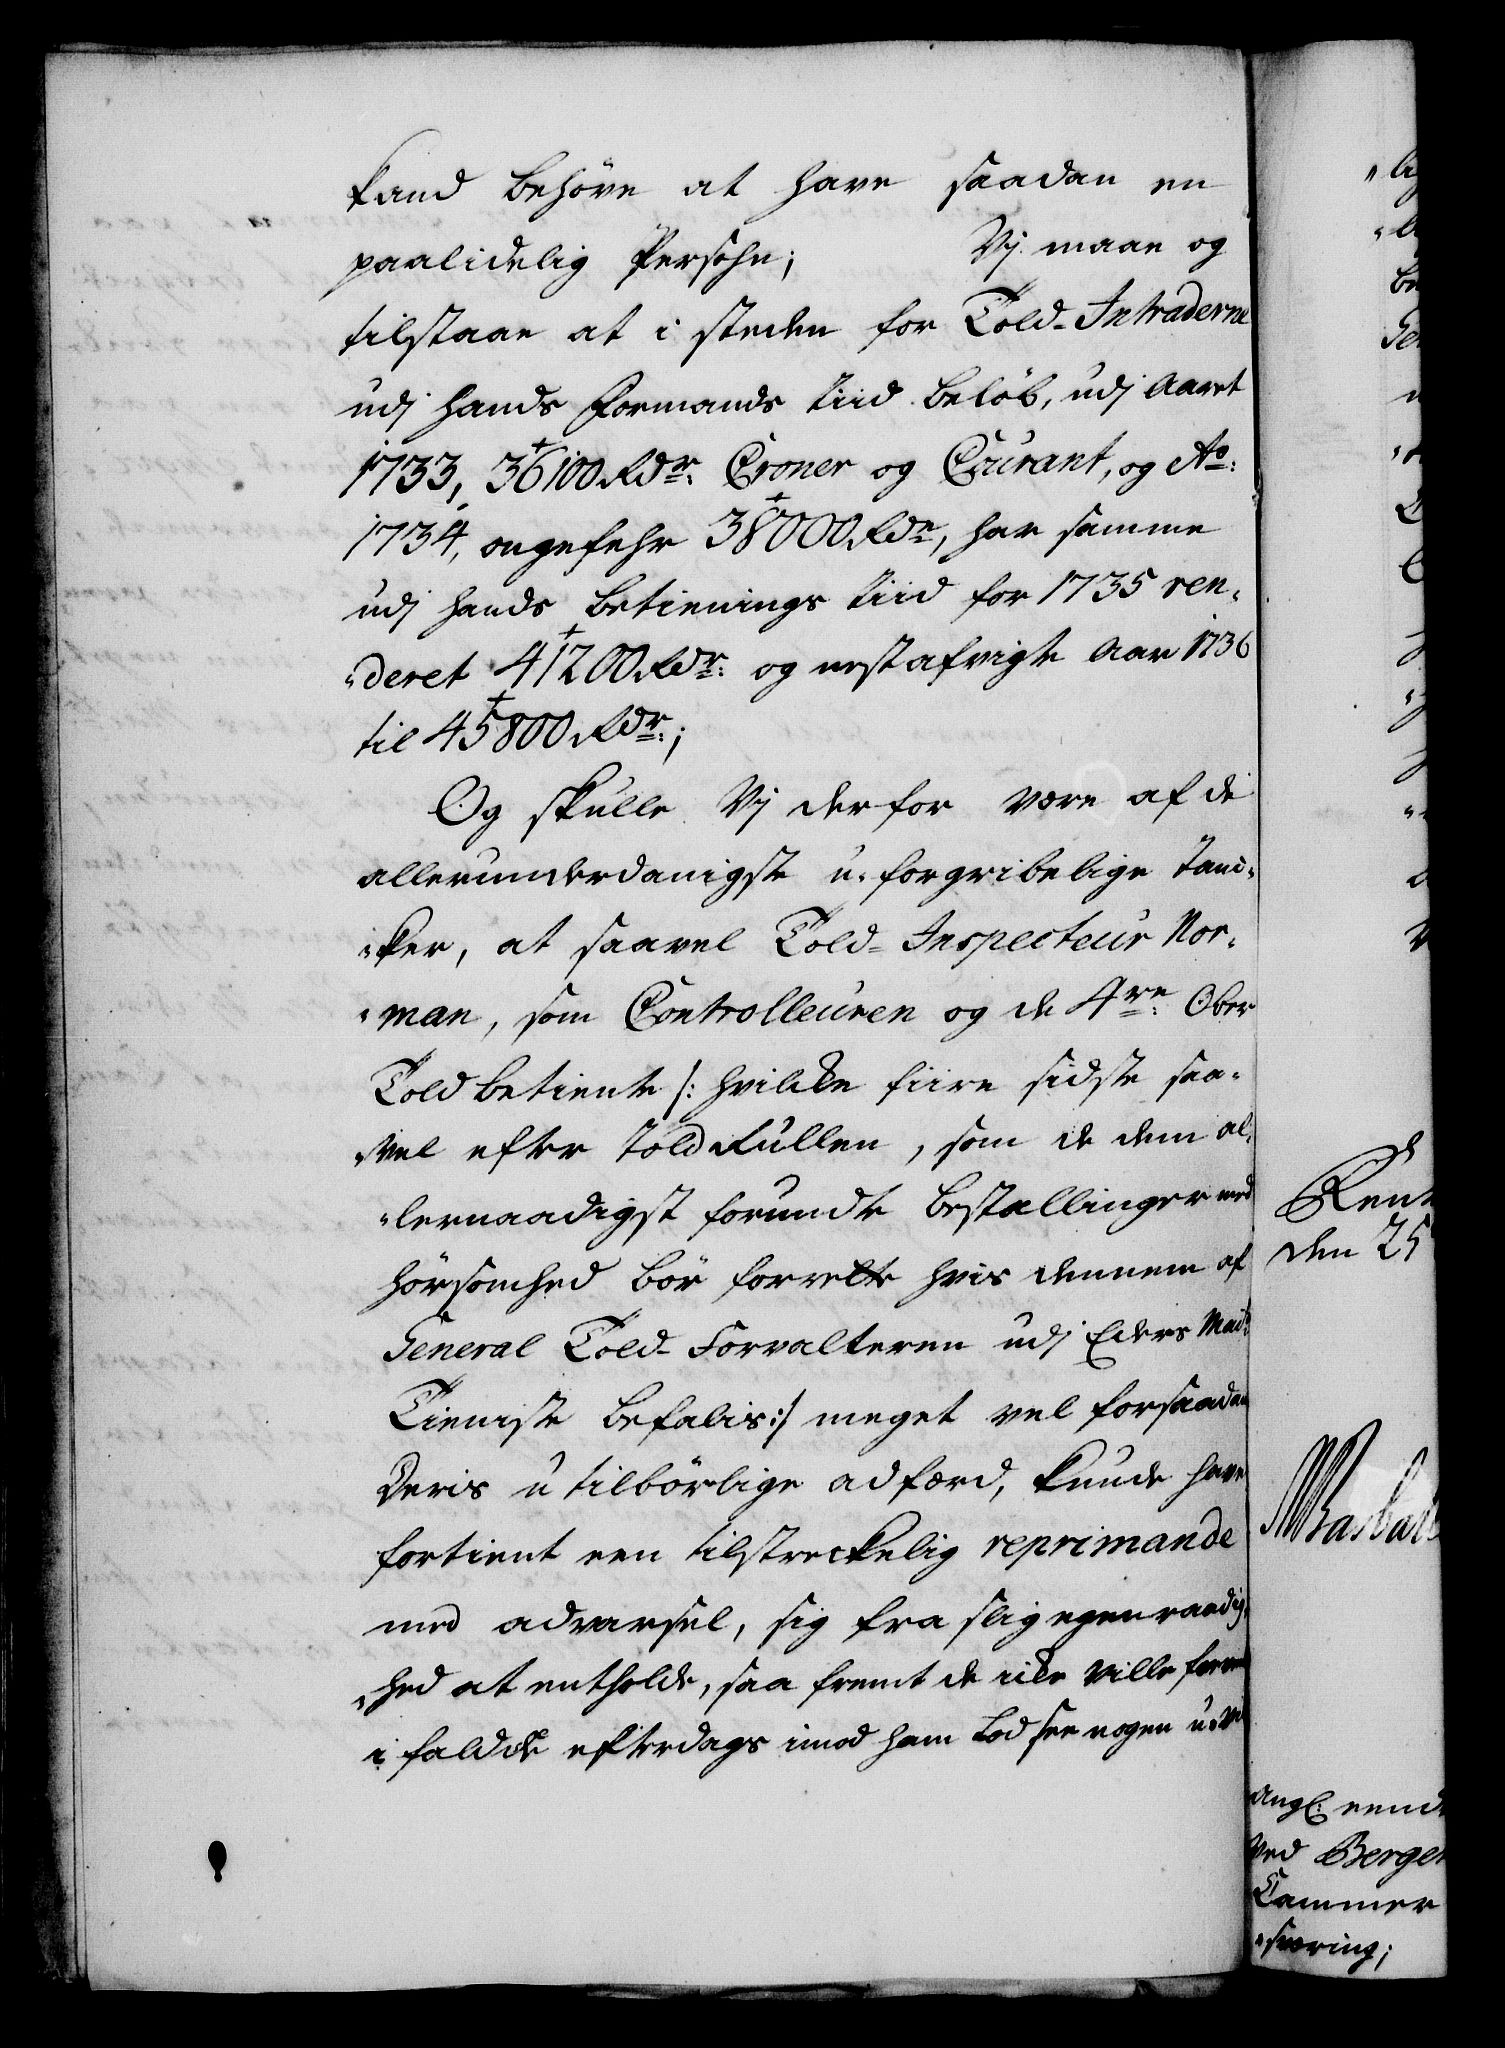 kand behöve at have saadan en
paalidelig Persohn; Vj maae og
tilstaae at i steden for Told-Intraderne
udj hands Formands tiid beløb, udj Aaret
1733, 36100 Rdr: Croner og Courant, og Ao:
1734, ongefehr 38000 Rdr, har samme
udj hands betienings tiid for 1735 ren-
deret 41200 Rdr: og nestafvigte Aar 1736
til 45800 Rdr:;
Og skulle Vj derfor være af de
allerunderdanigste u-forgribelige Tan-
ker, at saavel Told-Inspecteur Nor-
man, som Controlleuren og de 4re: Ober
Told betiente /: hvilke fiire sidste saa-
vel efter Told Rullen, som de dem al-
lernaadigst forundte bestallinger med
hörsomhed bör forrette hvis dennem af
General Told-Forvalteren udj Eders Mait:
Tieniste befalis :/ meget vel for saadan
Deris utilbörlige adfærd, kunde have
fortient een tilstreckelig reprimande
med advarsel, sig fra slig egenraadig-
hed at entholde, saa fremt de icke ville
i fald de efterdags imod ham lod see nogen
Rent
den 25
ved Bergen
Cammer